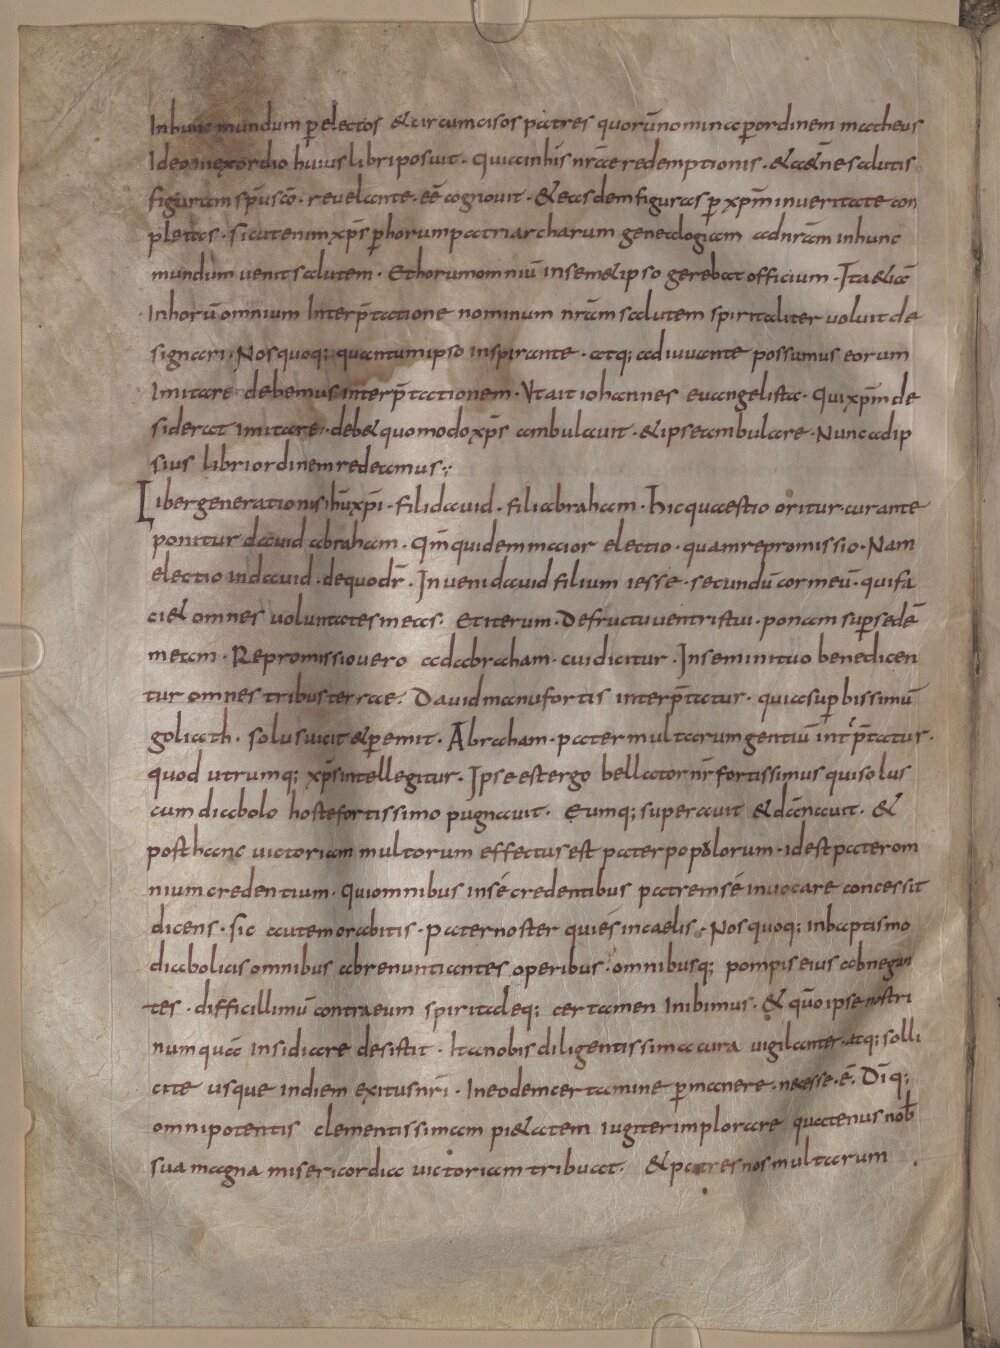 Inhunc mundum p̄ electos & circumcisos patres quorū nomina p̄ordinem matheus
Ideo inexordio huius libri posuit · Quia inhis nr̄ae redemptionis · & aet̄ne salutis
figuram sp̄u sc̄o · reuelante · eē cognouit · & easdem figuras p̄ xp̄m inueritate con
pletas · sicut enim xp̄s p̄ horum patriarcharum genealogiam ad nr̄am inhunc
mundum uenit salutem · Et horum omniū insem&ipso gerebat officium · Ita & iā
Inhorū omnium Interp̄tatione nominum nr̄am salutem spiritaliter uoluit de
signari · Nos quoq; quantum ipso inspirante · atq; adiuuante possumus eorum
Imitare debemus interp̄tationem · Vt ait iohannes euangelista · Qui xp̄m de
siderat imitare · deb& quomodo xp̄s ambulauit · & ipse ambulare · Nunc adip
sius libri ordinem redeamus ;
Liber generationis ihū xp̄i · fili dauid · fili abraham · Hic quaestio oritur · cur ante
ponitur dauid abraham · Qm̄ quidem maior electio · quam repromissio · Nam
electio indauid · de quo dr̄ · Inueni dauid filium iesse · secundū cor meū · qui fa
ci& omnes uoluntates meas · Et iterum · De fructu uentris tui · ponam sup̄ sedē
meam · Repromissio uero ad abraham · cui dicitur · In semini tuo benedicen
tur omnes tribus terrae · Dauid manu fortis interp̄tatur · quia sup̄bissimū
goliath · solus uicit & p̄emit · Abraham · pater multarum gentiū int̄p̄tatur ·
quod utrumq; xp̄s intellegitur · Ipse est ergo bellator nr̄ fortissimus qui solus
cum diabolo hoste fortissimo pugnauit · Eumq; superauit & dānauit · &
post hanc uictoriam multorum effectus est pater popolorum · id est pater om
nium credentium · Qui omnibus insé credentibus patrem sé inuocare concessit
dicens · sic autem orabitis · Pater noster qui és in caelis · Nos quoq; inbaptismo
diabolicis omnibus abrenuntiantes operibus · omnibusq; pompis eius abnegan
tes · difficillimū contra eum spiritaleq; certamen Inibimus · & quō ipse nostri
numquā insidiare desistit · Ita nobis diligentissima cura uigilanter · atq; solli
cite usque in diem exitus nr̄i · In eodem certamine p̄manere · necesse · ē · Dīq;
omnipotentis clementissimam pi&atem iugiter implorare quatenus nob̄
sua magna misericordia uictoriam tribuat · & patres nos multarum